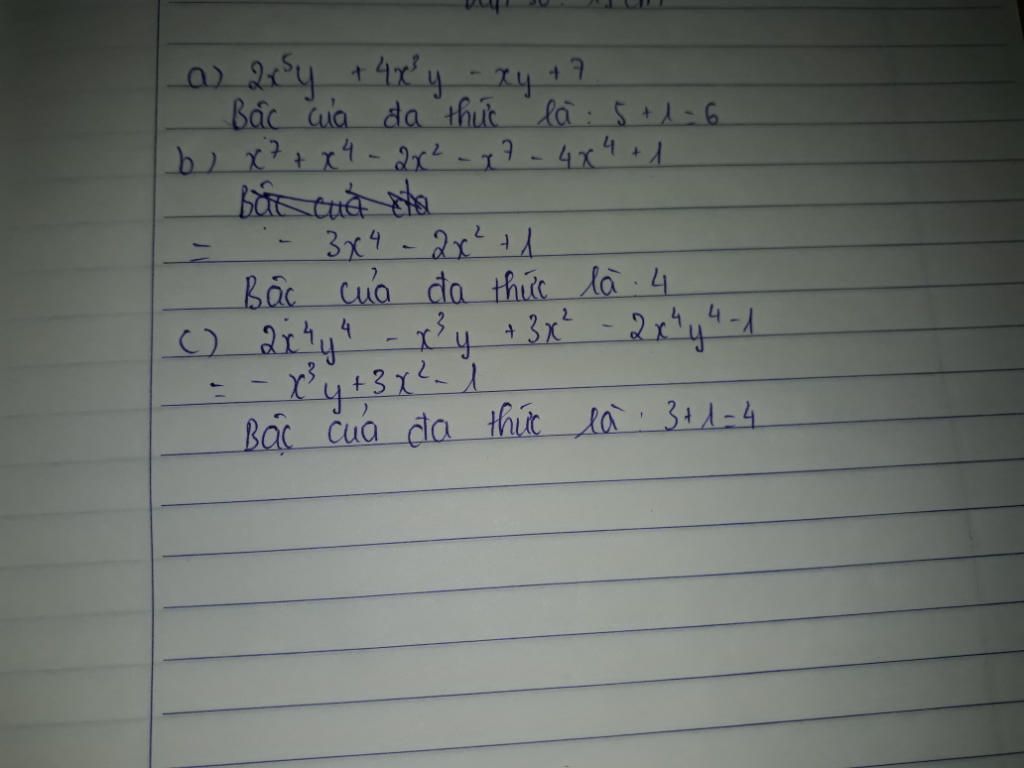 a) 2x⁵y + 4x³y - xy + 7
Bậc của đa thức là : 5 + 1 = 6
b) x⁷ + x⁴ - 2x² - x⁷ - 4x⁴ + 1
Bậc của đa
= - 3x⁴ - 2x² + 1
Bậc của đa thức là : 4
c) 2x⁴y⁴ - x³y + 3x² - 2x⁴y⁴ - 1
= - x³y + 3x² - 1
Bậc của đa thức là : 3 + 1 = 4